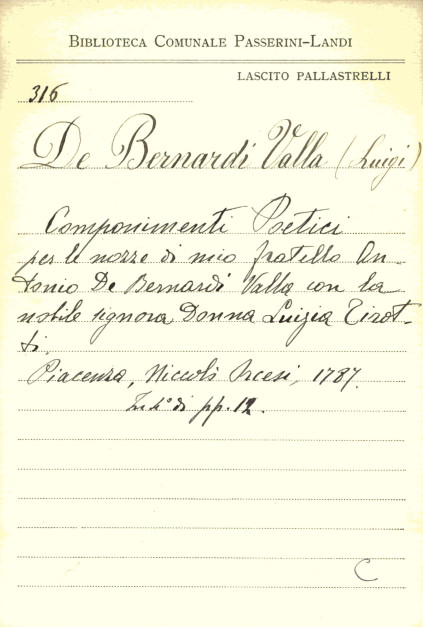 BIBLIOTECA COMUNALE PASSERINI-LANDI
LASCITO PALLASTRELLI
316
De Bernardi Valla (Luigi)
Componimenti Poetici
per le nozze di mio fratello An-
tonio De Bernardi Valla con la
nobile signora Donna Luigia Tirot-
ti.
Piacenza, Niccolò Orcesi, 1787.
In 4° di pp. 12.
C